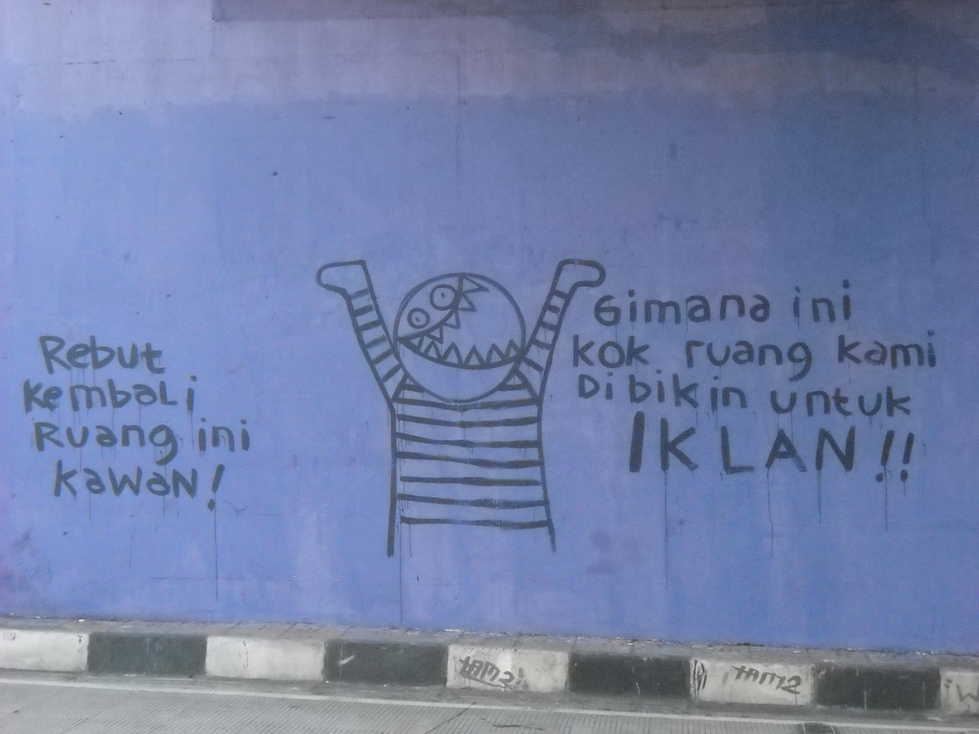 Rebut
kembali
Ruang ini
kawan!
Gimana ini
kok ruang kami
Dibikin untuk
IKLAN!!
tam2
tam2